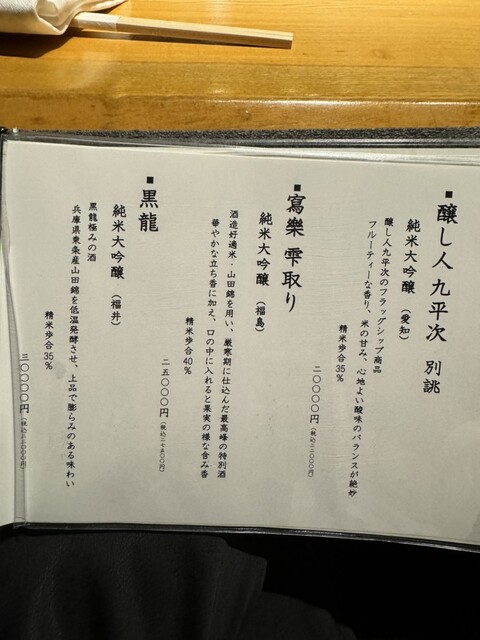 ■醸し人 九平次 別誂
純米大吟醸（愛知）
醸し人九平次のフラッグシップ商品
フルーティーな香り、米の甘み、心地よい酸味のバランスが絶妙
精米歩合35％
二〇〇〇〇円（税込二二〇〇〇円）
■寫樂 雫取り
純米大吟醸（福島）
酒造好適米・山田錦を用い、厳寒期に仕込んだ最高峰の特別酒
華やかな立ち香に加え、口の中に入れると果実の様な含み香
精米歩合40％
二五〇〇〇円（税込二七五〇〇円）
■黒龍
純米大吟醸（福井）
黒龍極みの酒
兵庫県東条産山田錦を低温発酵させ、上品で膨らみのある味わい
精米歩合35％
三〇〇〇〇円（税込三三〇〇〇円）